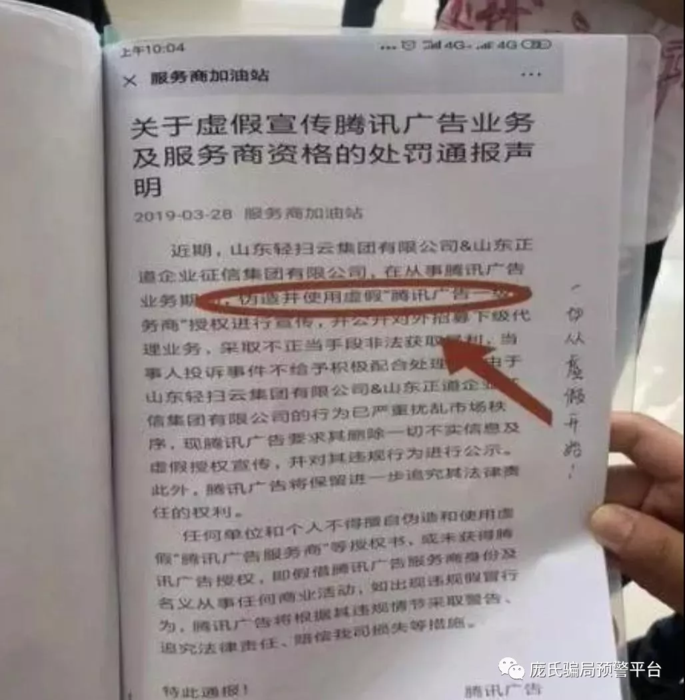 上午10:04
4G 4G
服务商加油站
关于虚假宣传腾讯广告业务
及服务商资格的处罚通报声
明
2019-03-28 服务商加油站
近期，山东轻扫云集团有限公司&山东正
道企业征信集团有限公司，在从事腾讯广告
业务期，伪造并使用虚假“腾讯广告一级
务商”授权进行宣传，并公开对外招募下级代
理业务，采取不正当手段非法获取利，当
事人投诉事件不给予积极配合处理由于
山东轻扫云集团有限公司&山东正道企业
信集团有限公司的行为已严重扰乱市场秩
序，现腾讯广告要求其删除一切不实信息及
虚假授权宣传，并对其违规行为进行公示。
此外，腾讯广告将保留进一步追究其法律责
任的权利。
任何单位和个人不得擅自伪造和使用虚
假“腾讯广告服务商”等授权书，或未获得腾
讯广告授权，即假借腾讯广告服务商身份及
名义从事任何商业活动，如出现违规假冒行
为，腾讯广告将根据其违规情节采取警告、
追究法律责任、赔偿我司损失等措施。
特此通报！ 腾讯广告
一切从虚假开始！
庞氏骗局预警平台